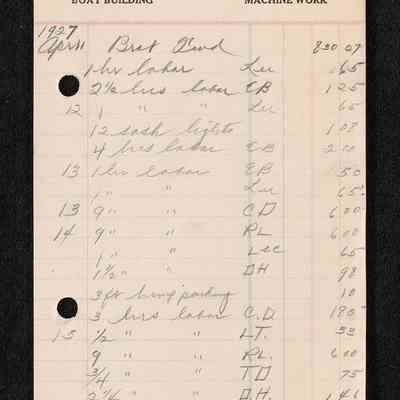 BOAT BUILDING MACHINE WORK
1927
April Brot Fwd 830 07
1 hr labor Lee 65
2 1/2 hrs labor EB 1 25
12 1 " " Lee 65
12 sash lights 1 08
4 hrs labor EB 2 00
13 1 hr labor EB 50
1 " " Lee 65
13 9 " " C D 6 00
14 9 " " RL 6 00
1 " " Lee 65
1 1/2 " " DH 98
3 ft hemp packing 10
3 hrs labor C.D. 1 80
15 1/2 " " L.T. 33
9 " RL. 6 00
3/4 " " T D 75
2 1/4 " " D.H. 1 46